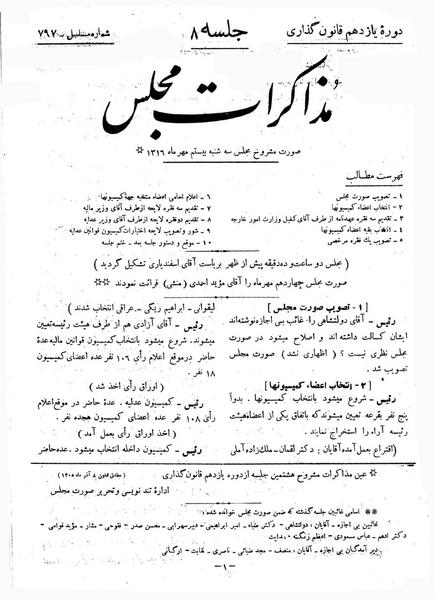 دورهٔ یازدهم قانون گذاری
جلسه ۸
شماره مسلسل ۷۹۷
مذاکرات مجلس
صورت مشروح مجلس سه شنبه بیستم مهر ماه ۱۳۱۶
فهرست مطالب
۱ - تصویب صورت مجلس
۲ - انتخاب اعضاء کمیسیونها
۳ - تقدیم سه فقره عهدنامه از طرف آقای کفیل وزارت امور خارجه
۴ - انتخاب بقیه اعضاء کمیسیونها
۵ - تصویب یك فقره مرخصی
۶ - اعلام اسامی اعضاء منتخبه جهة کمیسیونها
۷ - تقدیم سه فقره لایحه از طرف آقای وزیر مالیه
۸ - تقدیم دو فقره لایحه از طرف آقای وزیر عدلیه
۹ - شور و تصویب لایحه اختیارات کمیسیون قوانین عدلیه
۱۰ - موقع و دستور جلسه بعد - ختم جلسه
( مجلس دو ساعت و ده دقیقه پیش از ظهر بریاست آقای اسفندیاری تشکیل گردید )
صورت مجلس چهاردهم مهرماه را آقای مؤید احمدی (منشی) قرائت نمودند
[ ۱ - تصویب صورت مجلس ]
رئیس - آقای دولتشاهی را غائب بی اجازه نوشته‌اند
ایشان کسالت داشته‌اند و اصلاح میشود در صورت
مجلس نظری نیست ؟ ( اظهاری نشد ) صورت مجلس
تصویب شد .
[ ۲ - انتخاب اعضاء کمیسیونها ]
رئیس - شروع میشود بانتخاب کمیسیونها . بدواً
پنج نفر بقرعه تعیین میشوند که باتفاق یکی از اعضاء هیئت
رئیسه آراء را استخراج نمایند .
(اقتراع بعمل آمده آقایان : دکتر لقمان - ملك زاده آملی
لیقوانی - ابراهیم ریگی - عراقی انتخاب شدند )
رئیس - آقای آزادی هم از طرف هیئت رئیسه تعیین
میشوند. شروع میشود بانتخاب کمیسیون قوانین مالیه عدهٔ
حاضر در موقع اعلام رأی ۱۰۶ نفر عده اعضای کمیسیون
۱۸ نفر .
( اوراق رأی اخذ شد )
رئیس - کمیسیون عدلیه . عدهٔ حاضر در موقع اعلام
رأی ۱۰۸ نفر عده اعضای کمیسیون هجده نفر .
( اخذ اوراق رأی بعمل آمد )
رئیس - کمیسیون داخله انتخاب میشود . عده حاضر
عین مذاکرات مشروح هشتمین جلسه از دوره یازدهم قانون گذاری
(مطابق قانون ۸ آذر ماه ۱۳۰۵)
ادارهٔ تند نویسی و تحریر صورت مجلس
اسامی غائبین جلسه گذشته که ضمن صورت مجلس خوانده شده :
غائبین بی اجازه - آقایان : دولتشاهی - دکتر ضیاء - امیر ابراهیمی - دبیر سهرابی - محسن صدر - نقوحی - مشار - مؤید قوامی -
دکتر ادهم - عباس مسعودی - اعظم زنگنه -
دیر آمدگان بی اجازه - آقایان : منصف - مجد ضیائی - ناصری -
- ۱ -